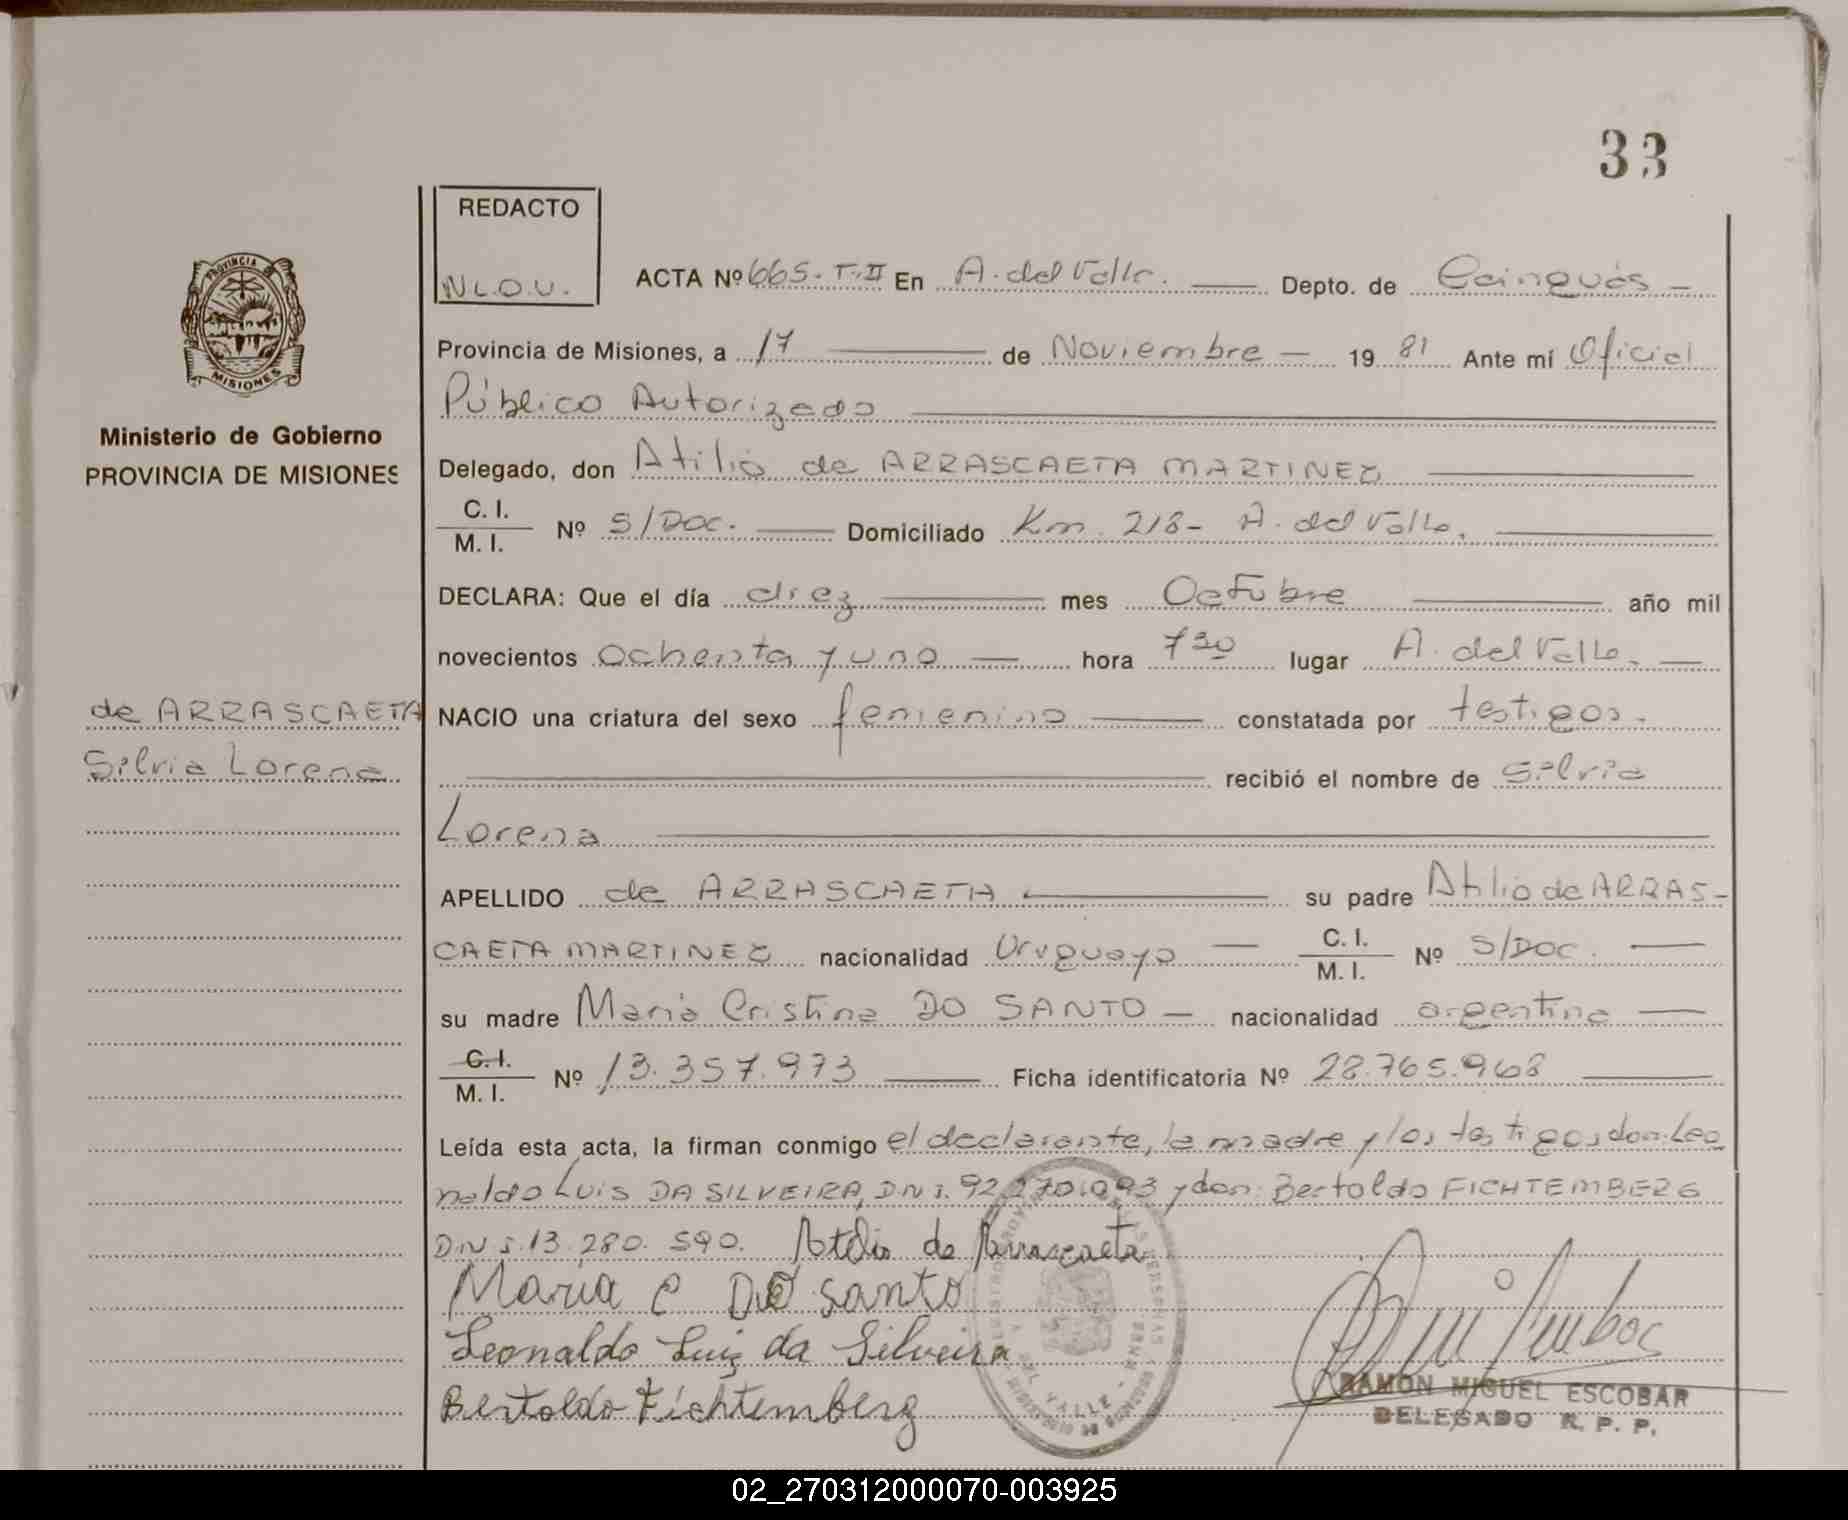 33
REDACTO
N.L.O.V.
ACTA Nº 665-T-II En A. del Valle. Depto. de Cainguás
Provincia de Misiones, a 17 de Noviembre 19 81 Ante mí Oficial
Público Autorizado
Delegado, don Atilio de ARRASCAETA MARTINEZ
C. I.
M. I.
Nº S/DOC. Domiciliado Km. 218- A. del Valle.
DECLARA: Que el día diez mes Octubre año mil
novecientos ochenta y uno hora 7 30 lugar A. del Valle.
NACIO una criatura del sexo femenino constatada por testigos.
recibió el nombre de Silvia
Lorena
APELLIDO de ARRASCAETA su padre Atilio de ARRAS-
CAETA MARTINEZ nacionalidad Uruguayo C. I. M. I. Nº S/DOC.
su madre María Cristina DO SANTO nacionalidad argentina
C. I. M. I. Nº 13.357.973 Ficha identificatoria Nº 28.765.968
Leída esta acta, la firman conmigo el declarante, la madre y los testigos don: Leo
naldo Luis DA SILVEIRA, D.N.I. 92.270.093 y don: Bertoldo FICHTEMBERG
D.N.I. 13.280.590. Atilio de Arrascaeta
Maria C DO santo
Leonaldo Luiz da Silveira
Bertoldo Fichtemberg
RAMON MIGUEL ESCOBAR
DELEGADO R. P. P.
PROVINCIA
MISIONES
Ministerio de Gobierno
PROVINCIA DE MISIONES
de ARRASCAETA
Silvia Lorena
VALLE
02_270312000070-003925